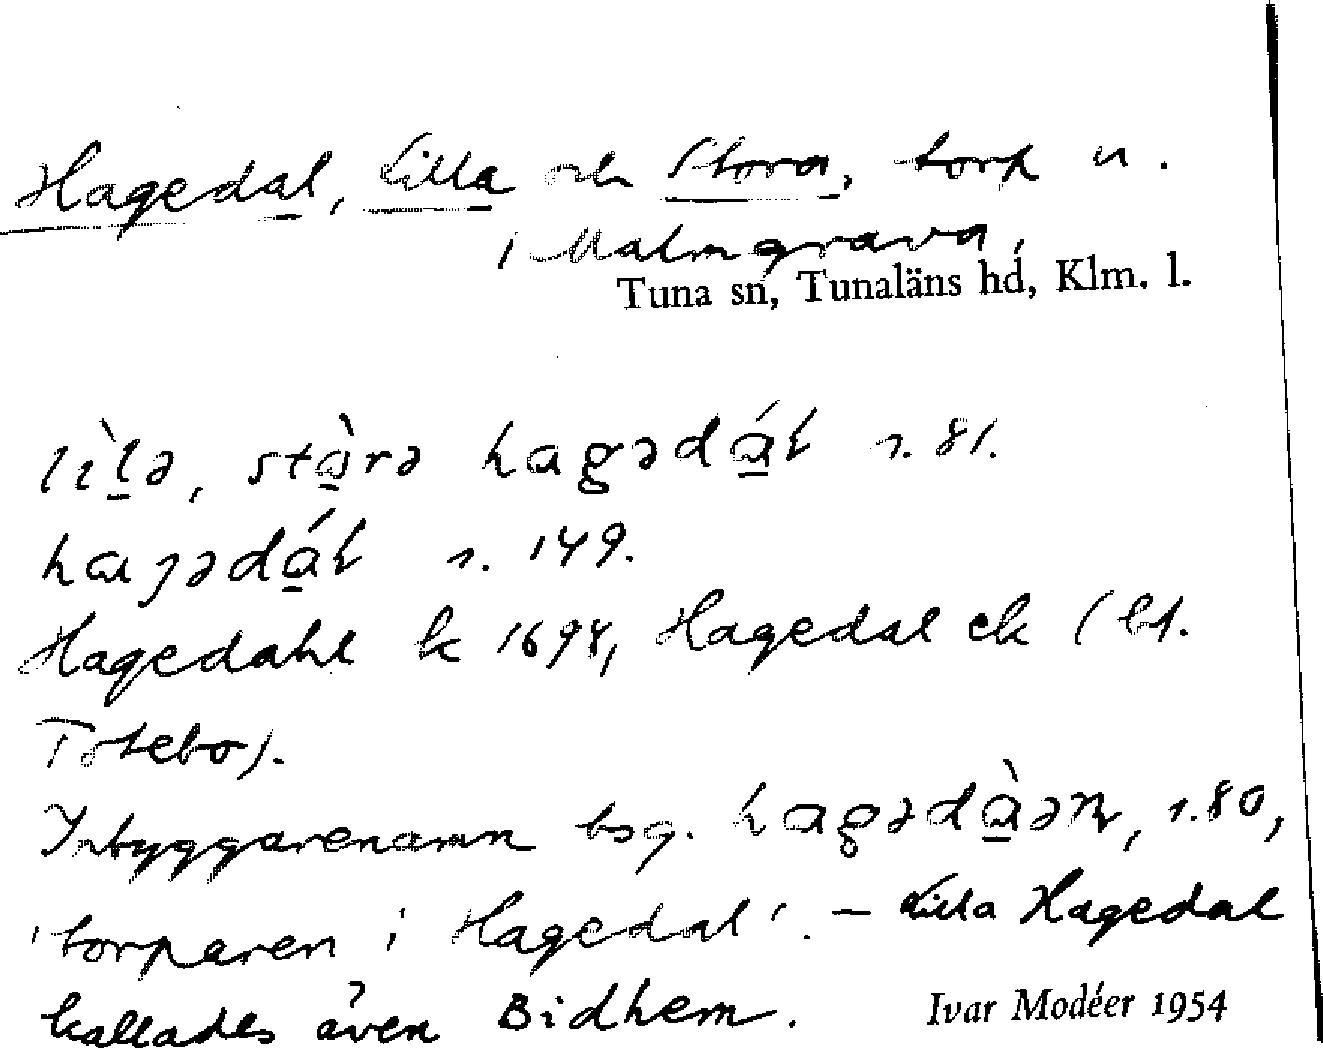 Hagedal, Lilla och Stora, torp u.
i Malmgrava,
Tuna sn, Tunaläns hd, Klm. l.
s. 81.
s. 149.
Hagedahl k 1698, Hagedal ek (bl.
Totebo).
Inbyggarenamn bsg. s. 80,
'torparen i Hagedal'. – Lilla Hagedal
kallades även Bidhem.
Ivar Modéer 1954